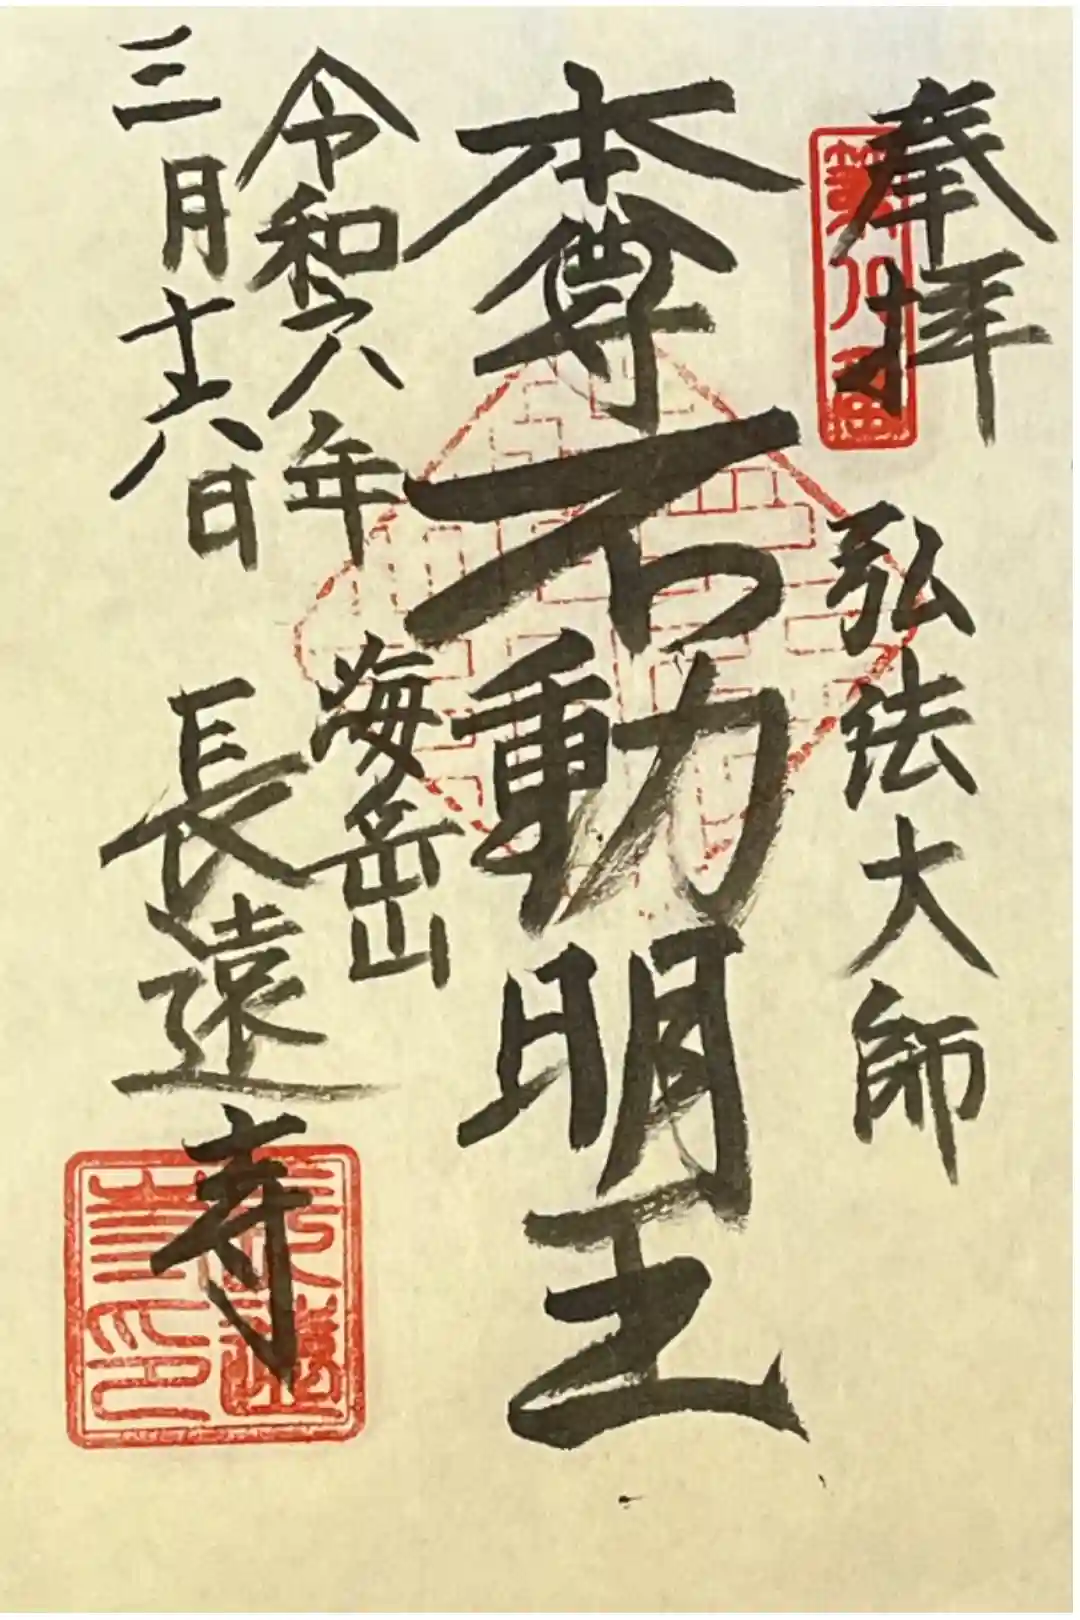 奉拝
弘法大師
本尊不動明王
海岳山
長遠寺
令和六年
三月十六日